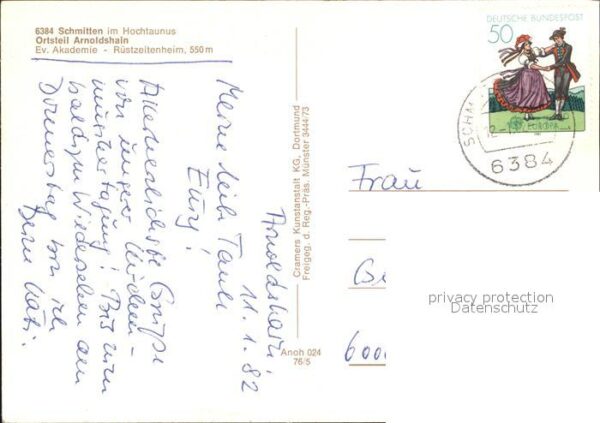 6384 Schmitten im Hochtaunus
Ortsteil Arnoldshain
Ev. Akademie - Rüstzeitenheim, 550 m
DEUTSCHE BUNDESPOST
50
EUROPA
SCHM
12.-1.
6384
Arnoldshain,
11.1.82
Meine liebe Tante
Allerherzlichste Grüße
von unserer
! Bis zum
baldigen Wiedersehen am
Donnerstag bin ich
Deine Käti.
Cramers Kunstanstalt KG, Dortmund
Freigeg. d. Reg.-Präs. Münster 3444/73
Anoh 024
76/5
Frau
600
privacy protection
Datenschutz